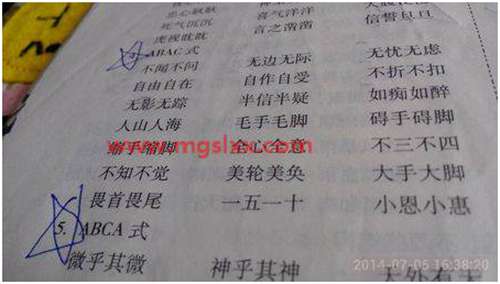 忠心耿耿
死气沉沉 喜气洋洋
虎视眈眈 言之凿凿 信誓旦旦
ABAC 式
不闻不问 无边无际 无忧无虑
自由自在 自作自受 不折不扣
无影无踪 半信半疑 如痴如醉
人山人海 毛手毛脚 碍手碍脚
缩手缩脚 全心全意 不三不四
www.mgslxx.com
不知不觉 美轮美奂 大手大脚
畏首畏尾 一五一十 小恩小惠
5. ABCA 式
微乎其微 神乎其神 天外有天
2014-07-05 16:38:20